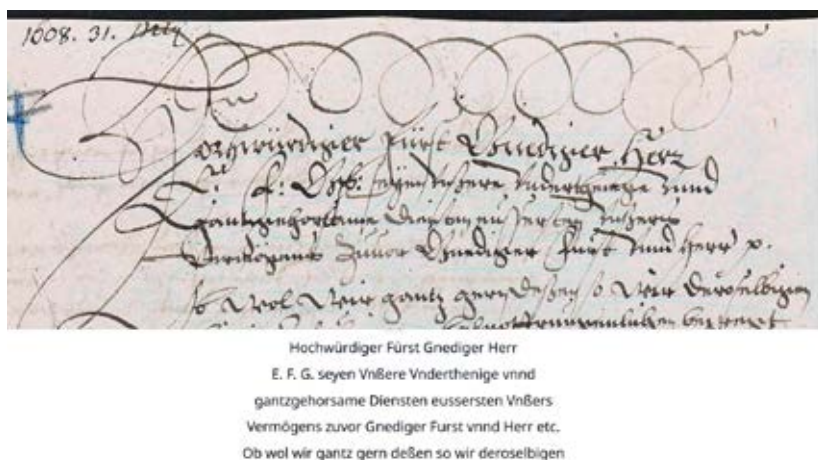 1608. 31.
Hochwürdiger Fürst Gnediger Herr
E. F. G. seyen Vnßere Vnderthenige vnnd
gantzgehorsame Diensten eussersten Vnßers
Vermögens Zuvor Gnediger Fürst vnnd Herr p.
Ob Wol Wir gantz gern deßen so Wir deroselbigen
Hochwürdiger Fürst Gnediger Herr
E. F. G. seyen Vnßere Vnderthenige vnnd
gantzgehorsame Diensten eussersten Vnßers
Vermögens zuvor Gnediger Furst vnnd Herr etc.
Ob wol wir gantz gern deßen so wir deroselbigen